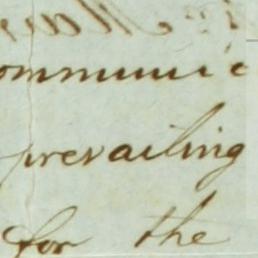 ommunic
prevailing
for the